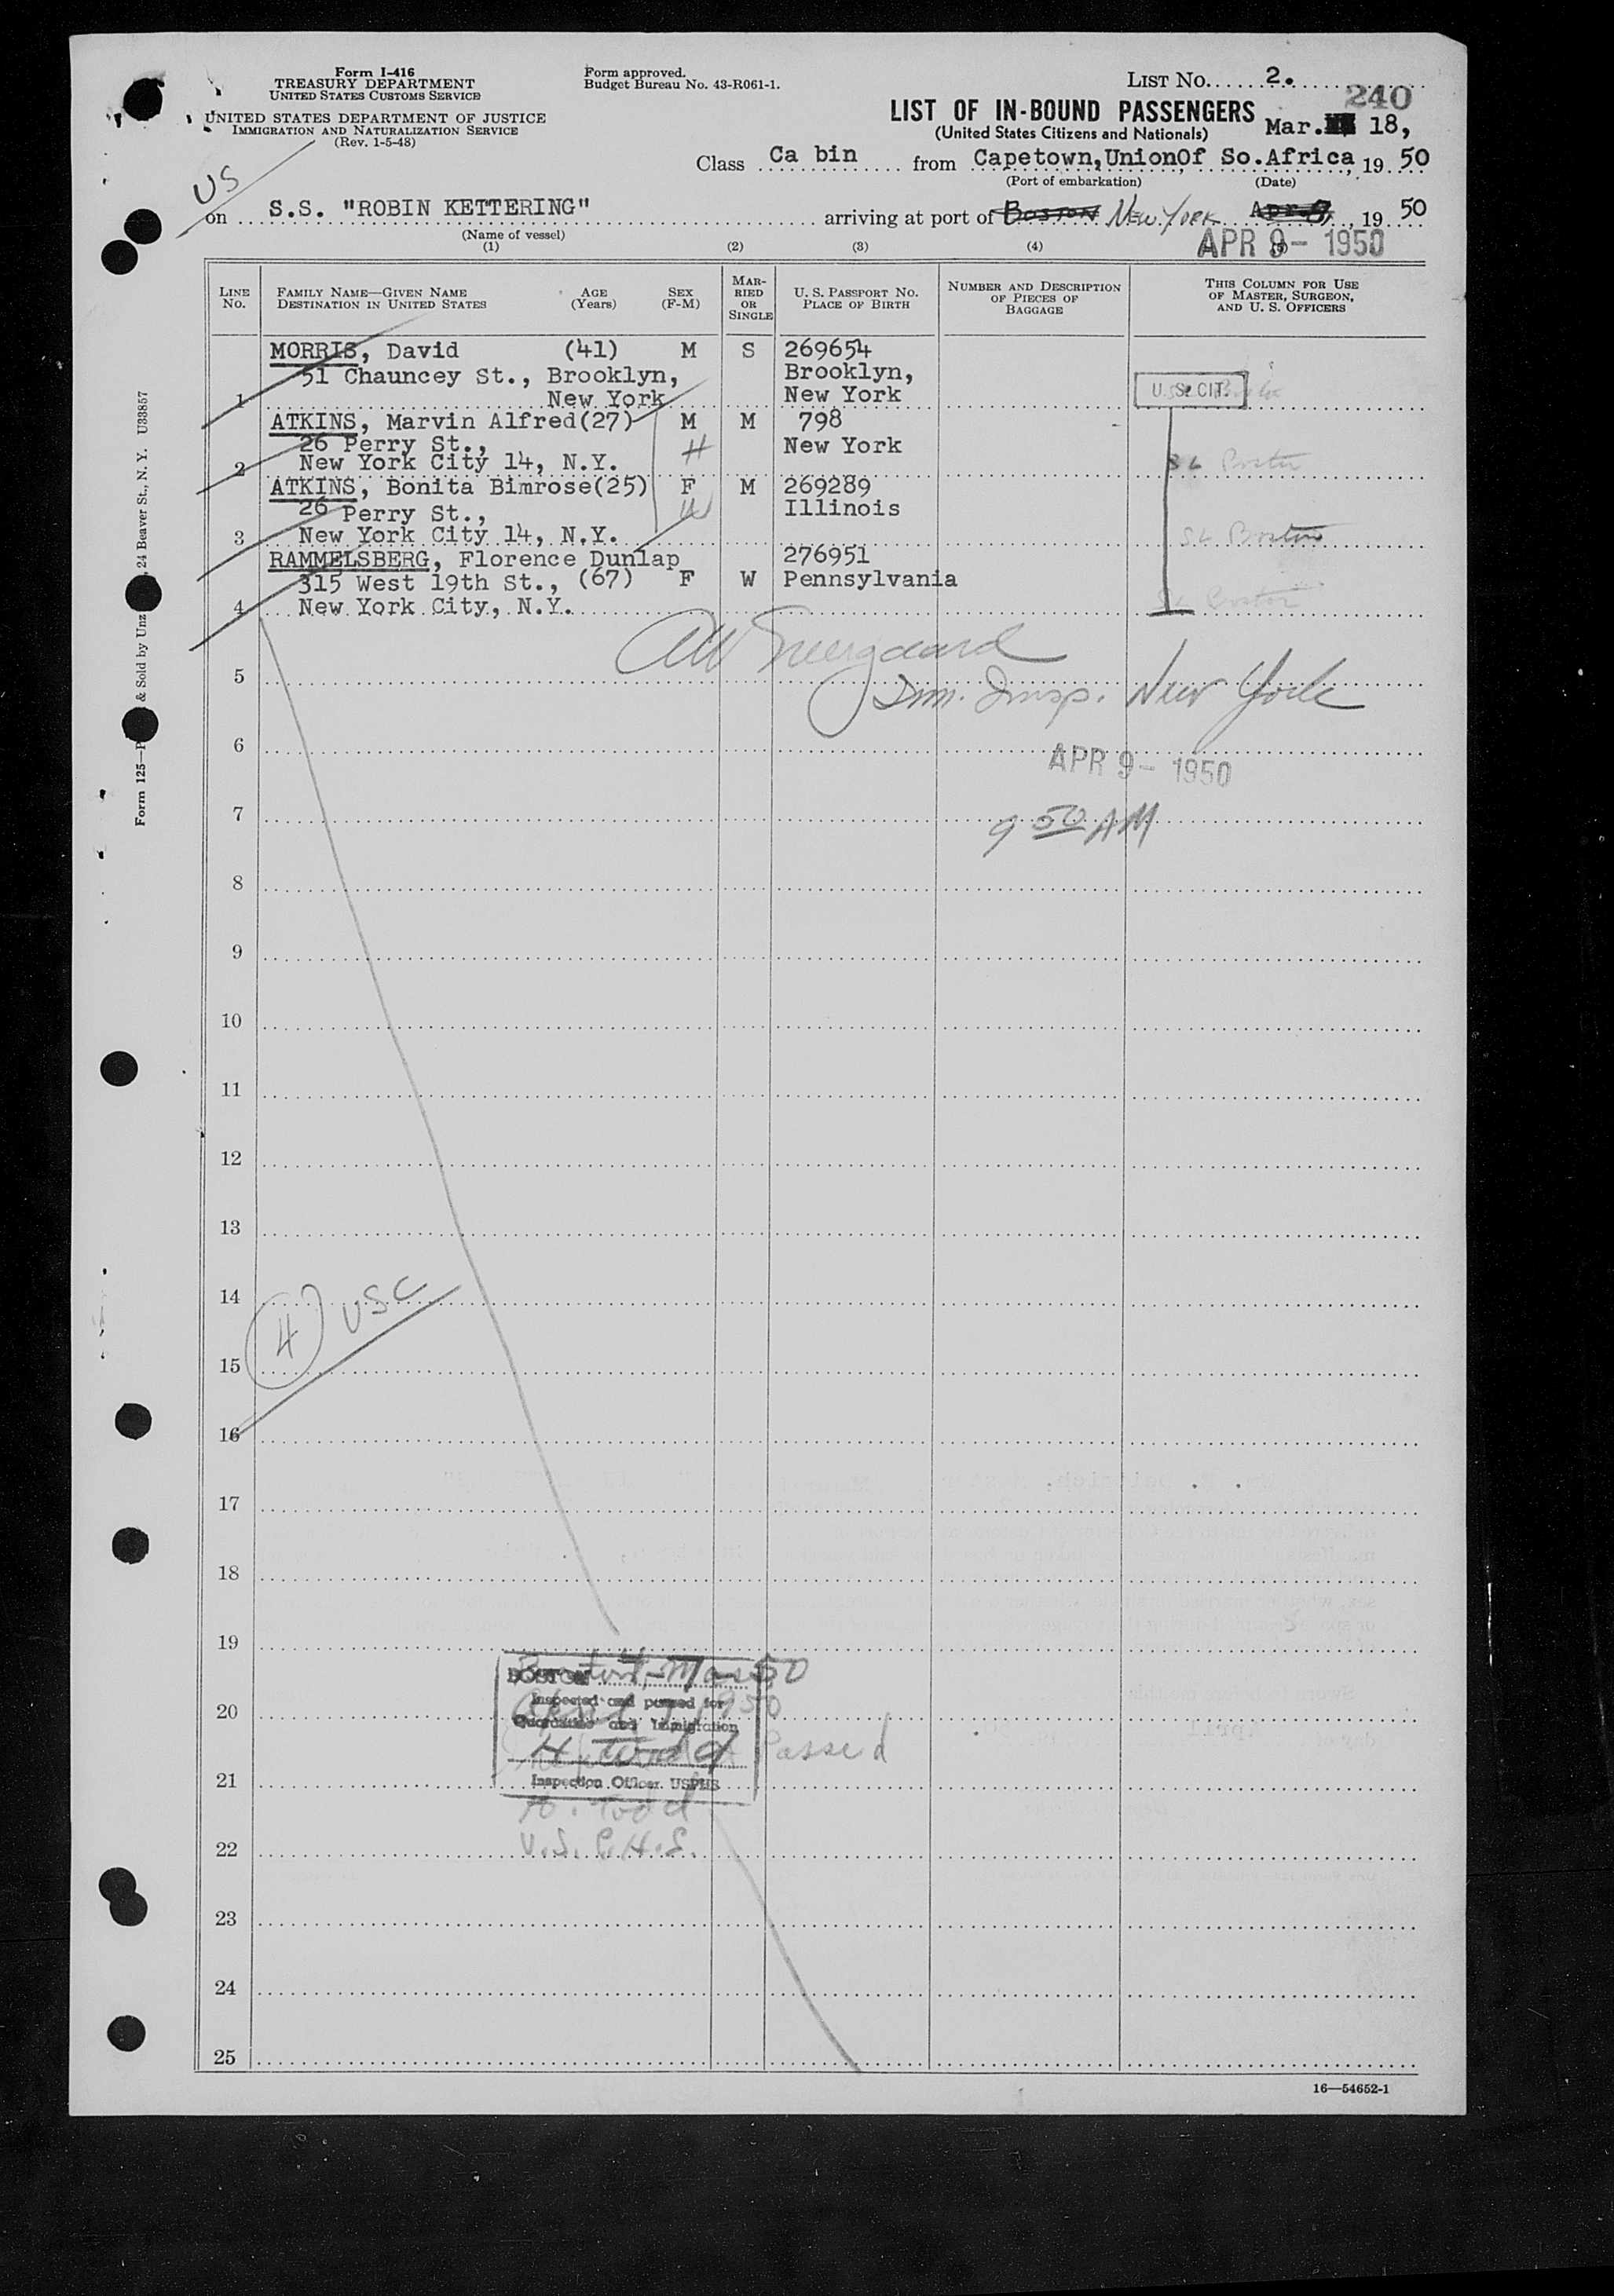 Form I-416
TREASURY DEPARTMENT
UNITED STATES CUSTOMS SERVICE
UNITED STATES DEPARTMENT OF JUSTICE
IMMIGRATION AND NATURALIZATION SERVICE
(Rev. 1-5-48)
Form approved.
Budget Bureau No. 43-R061-1.
LIST No. 2.
240
LIST OF IN-BOUND PASSENGERS
(United States Citizens and Nationals)
Mar. 18,
Class Ca bin from Capetown,UnionOf So.Africa, 19 50
(Port of embarkation) (Date)
US
on S.S. "ROBIN KETTERING" arriving at port of Boston New York Apr. 8, 19 50
(Name of vessel)
APR 9- 1950
(1) (2) (3) (4) (5)
LINE No. FAMILY NAME—GIVEN NAME DESTINATION IN UNITED STATES AGE (Years) SEX (F-M) MARRIED OR SINGLE U. S. PASSPORT No. PLACE OF BIRTH NUMBER AND DESCRIPTION OF PIECES OF BAGGAGE THIS COLUMN FOR USE OF MASTER, SURGEON, AND U. S. OFFICERS
MORRIS, David (41) M S 269654
51 Chauncey St., Brooklyn, Brooklyn,
1 New York New York U. S. CIT.
ATKINS, Marvin Alfred(27) M M 798
26 Perry St., H New York
2 New York City 14, N.Y. Boston
ATKINS, Bonita Bimrose(25) F M 269289
26 Perry St., W Illinois
3 New York City 14, N.Y. Boston
RAMMELSBERG, Florence Dunlap 276951
315 West 19th St., (67) F W Pennsylvania
4 New York City, N.Y. Boston
5
Imm. Insp. New York
6
APR 9- 1950
7
9 50 AM
8
9
10
11
12
13
14
4 USC
15
16
17
18
19
BOSTON
Inspected and passed for
20
Quarantine and Immigration
H. Todd Passed
21
Inspection Officer. USPHS
H. Todd
22 U.S.P.H.S.
23
24
25
16—54652-1
Form 125—P & Sold by Unz , 24 Beaver St., N. Y. U33857